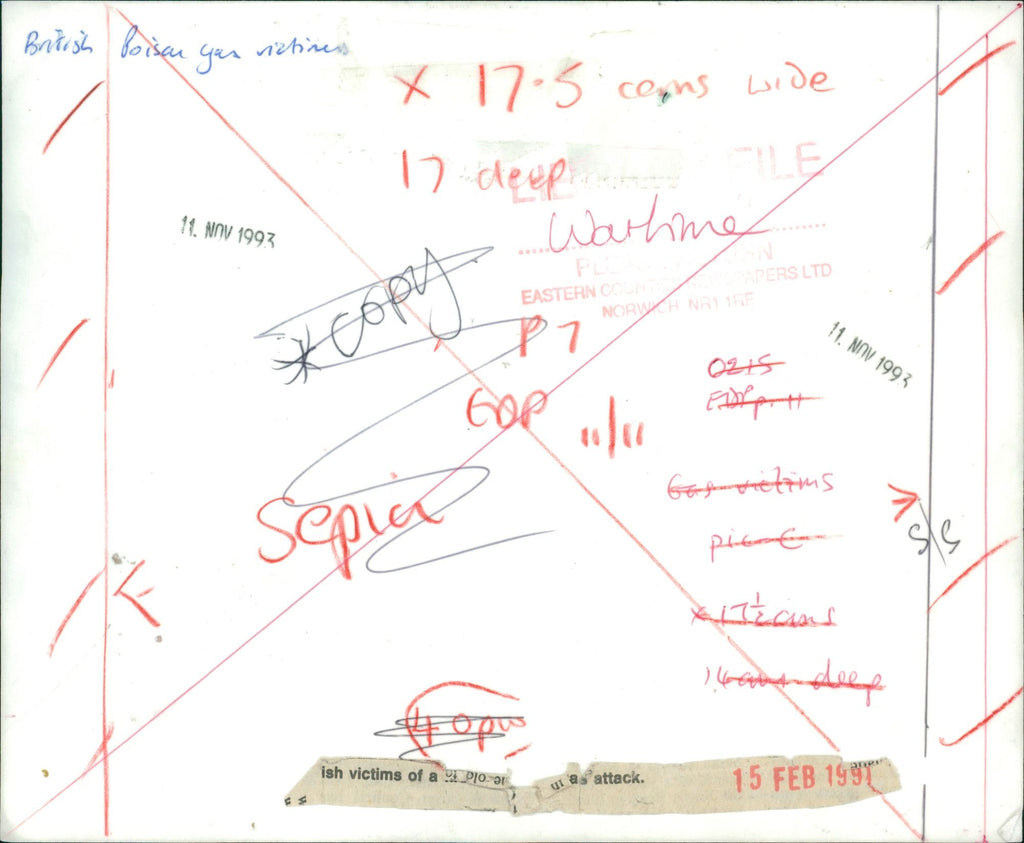 British Poison gas victims
x 17.5 cems wide
17 deep
FILE
Wartime
11. NOV 1993
EASTERN COUNTIES NEWSPAPERS LTD
NORWICH NR1 1RE
*COPY
P 7
11. NOV 1993
0215
EDP p. 11
EDP 11/11
Gas victims
pic C
Sepia
x 17½ cms
14 cms deep
ish victims of a
as attack.
15 FEB 1991